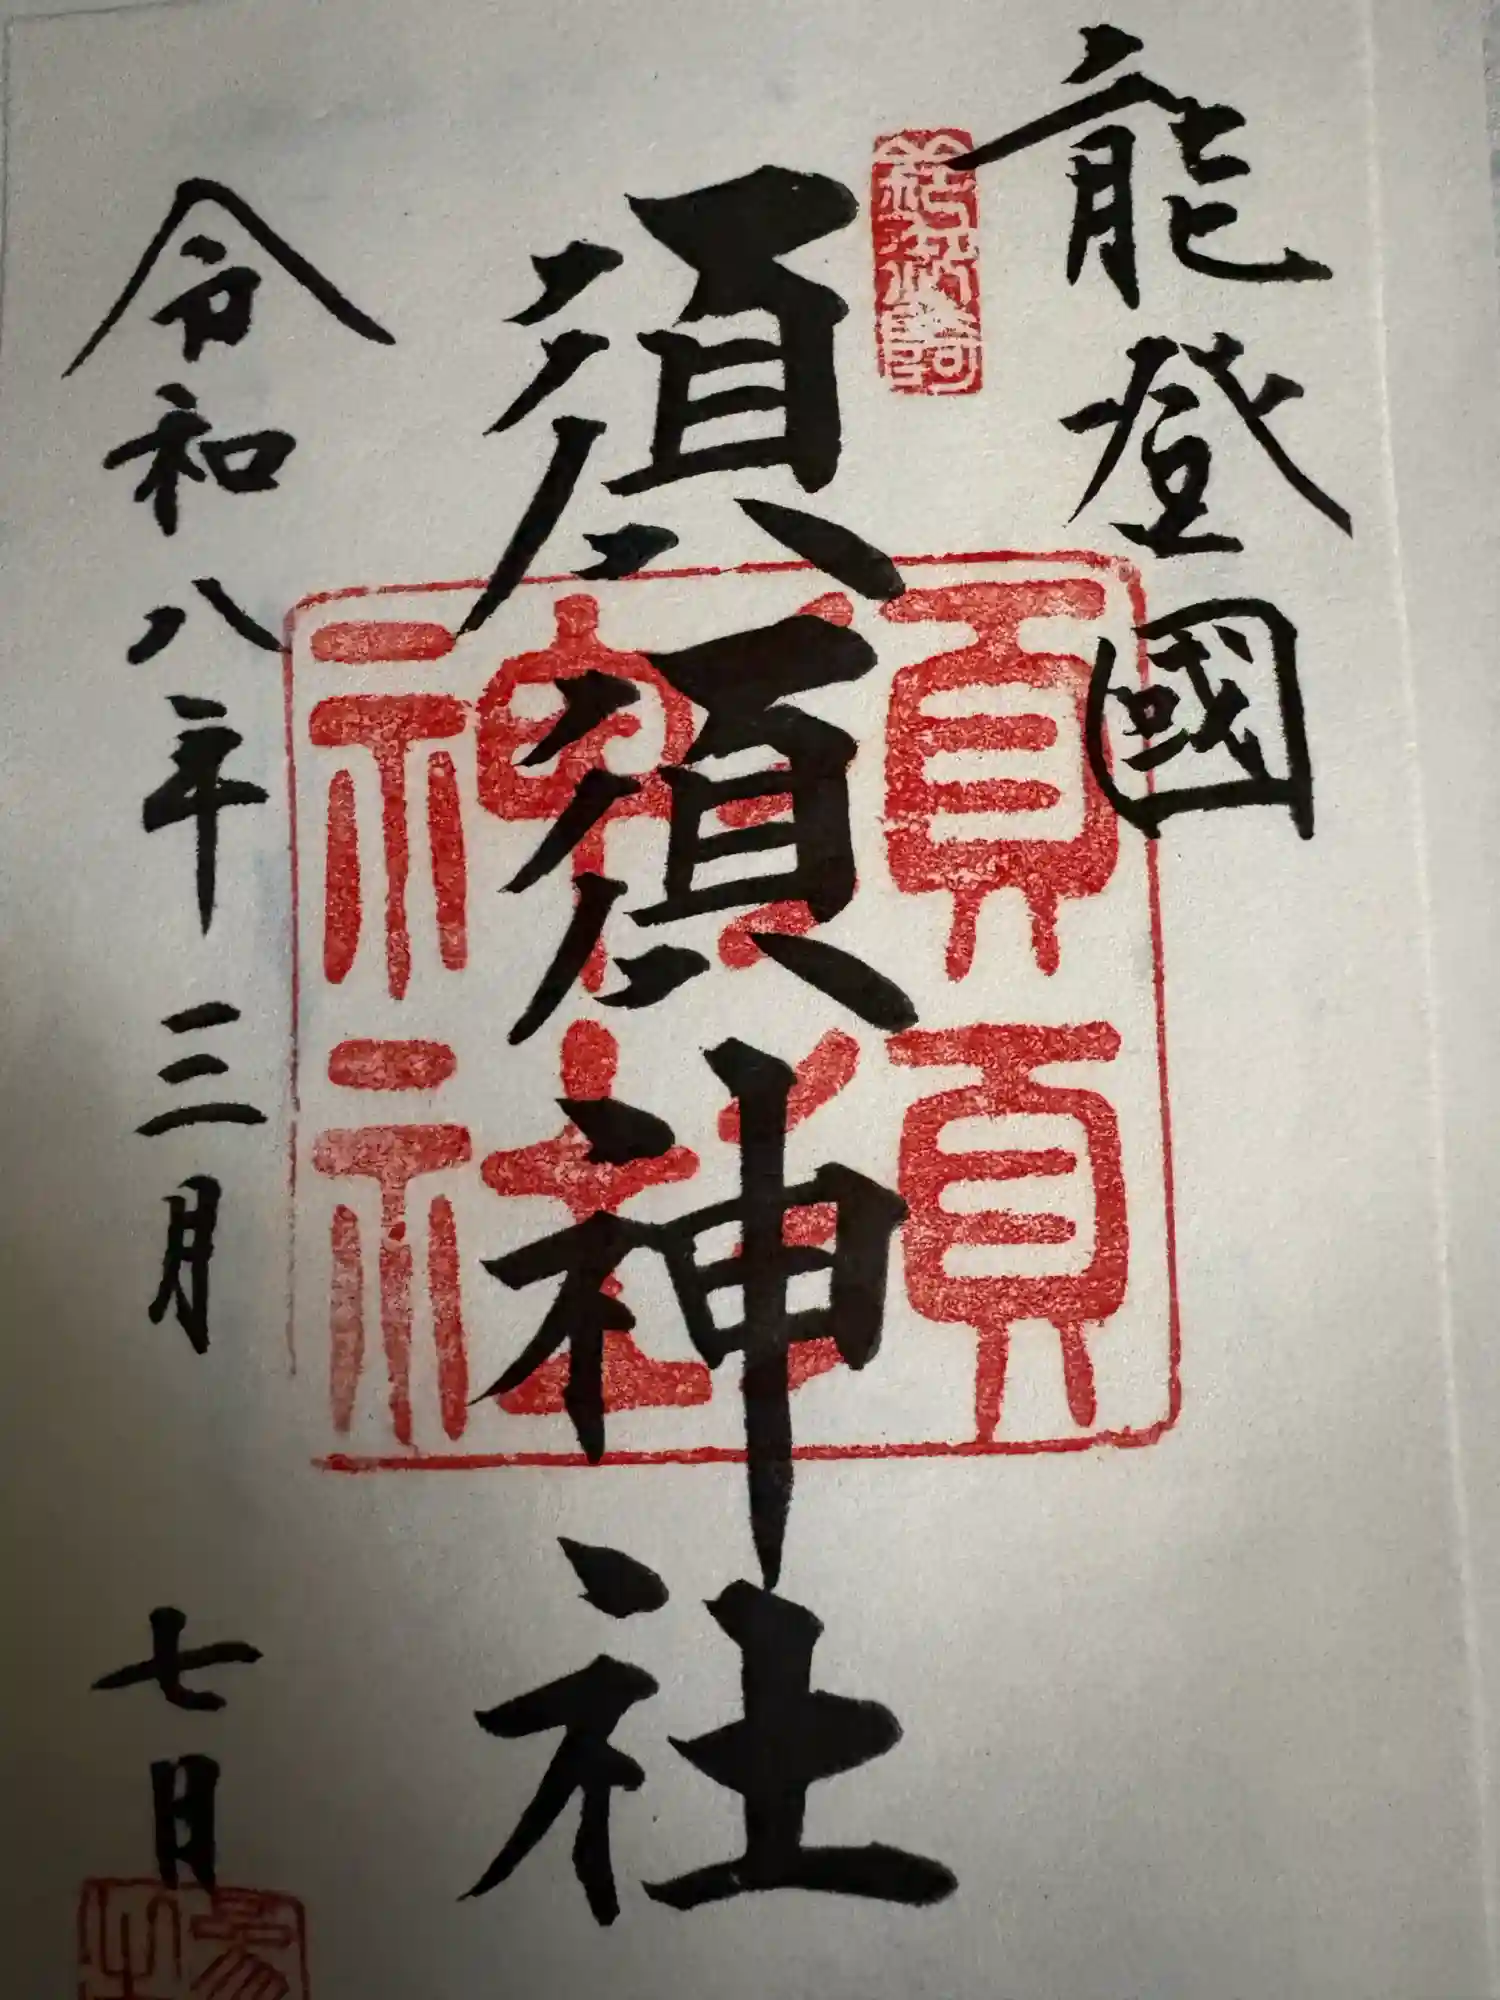 能登國
須須神社
須須
神社
令和八年三月 七日